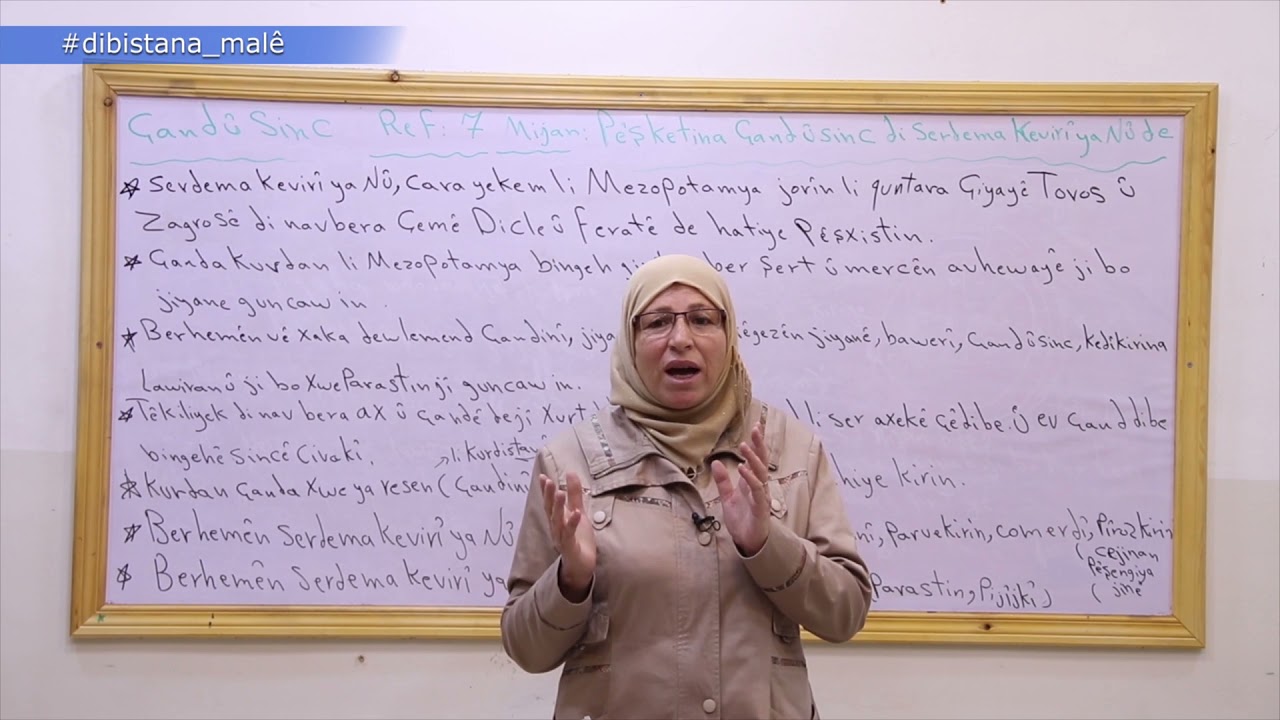 #dibistana_malê
Çand û Sinc Ref: 7 Mijar: Pêşketina Çand û sinc di Serdema Kevirî ya Nû de
* Serdema Kevirî ya Nû, cara yekem li Mezopotamya jorîn li quntara Çiyayê Toros û
Zagrosê di navbera Çemê Dicle û Feratê de hatiye Pêşxistin.
* Çanda Kurdan li Mezopotamya bingeh ber Şert û mercên avhewayê ji bo
jiyane guncaw in.
* Berhemên vê xaka dewlemend Çandinî, jiyanê, bawerî, Çand û sinc, kedîkirina
Lawiran û ji bo xwe Parastin jî guncaw in.
* Têkiliyek di navbera ax û Çandê de jî li ser axekê çêdibe. Û ev Çand dibe
bingehê sincê Civakî.
li Kurdistan
* Kurdan Çanda Xwe ya resen (Çandinî kirin.
* Berhemên Serdema Kevirî ya Nû parvekirin, comerdî, Pîrozkirin
* Berhemên Serdema Kevirî ya Parastin, Pijîjkî)
(cejinan
Pêşengiya
(jinê